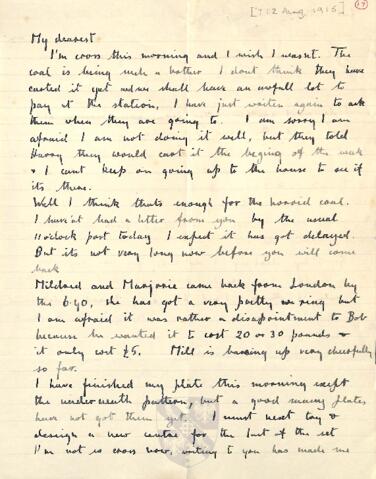 [? 12 Aug. 1915]
My dearest
I'm cross this morning and I wish I wasnt. The
coal is being such a bother I dont think they have
carted it yet and we shall have an awfull lot to
pay at the station, I have just writen again to ask
them when they are going to. I am sorry I am
afraid I am not doing it well, but they told
Harry they would cart it the begining of the week
& I cant keep on going up to the house to see if
its there.
Well I think thats enough for the horrid coal.
I have'nt had a letter from you by the usual
11 o'clock post today I expect it has got delayed.
But its not very long now before you will come
back
Mildred and Marjorie came back from London by
the 6.40, she has got a very pretty ring but
I am afraid it was rather a disapointment to Bob
because he wanted it to cost 20 or 30 pounds &
it only cost £5. Mill is bearing up very cheerfully
so far.
I have finished my plate this morning exept
the underneath pattern, but a good many plates
have not got them yet. I must next try &
design a new centre for the last of the set
I'm not so cross now, writing to you has made me